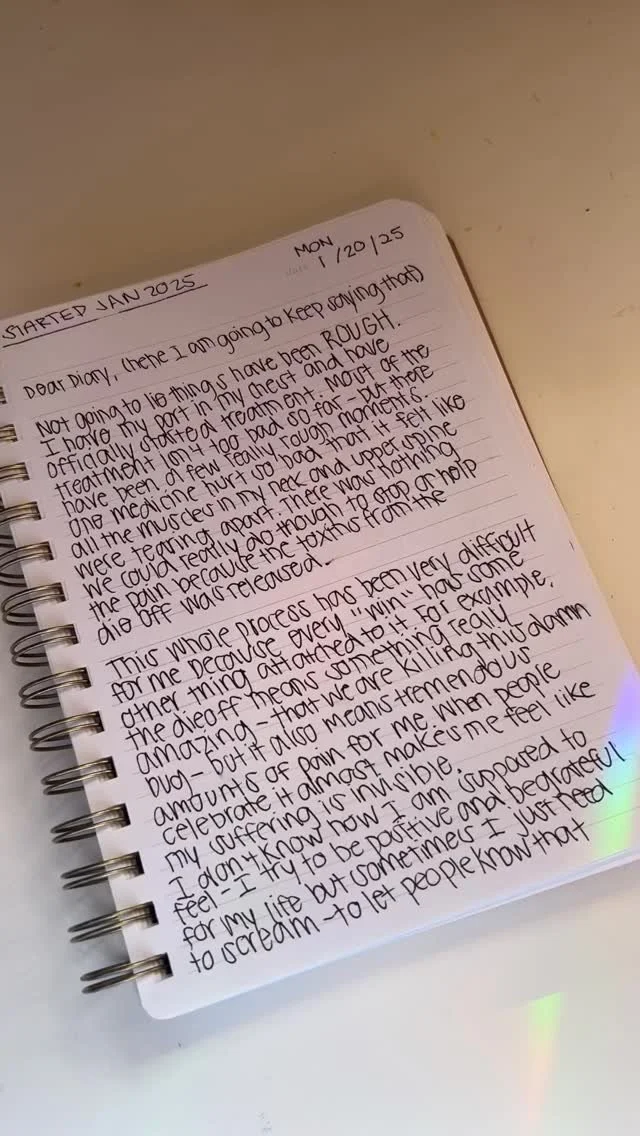 STARTED JAN 2025
MON
1/20/25
Dear Diary, (hehe I am going to keep saying that)
Not going to lie things have been ROUGH.
I have my port in my chest and have
officially started treatment. Most of the
treatment isn't too bad so far - but there
have been a few really rough moments.
One medicine hurt so bad that it felt like
all the muscles in my neck and upper spine
were tearing apart. There was nothing
we could really do though to stop or help
the pain because the toxins from the
die off was released.
This whole process has been very difficult
for me because every "win" has some
other thing attatched to it. For example,
the dieoff means something really
amazing - that we are killing this damn
bug - but it also means tremendous
amounts of pain for me. When people
celebrate it almost makes me feel like
my suffering is invisible.
I don't know how I am supposed to
feel - I try to be positive and be grateful
for my life but sometimes I just need
to scream - to let people know that